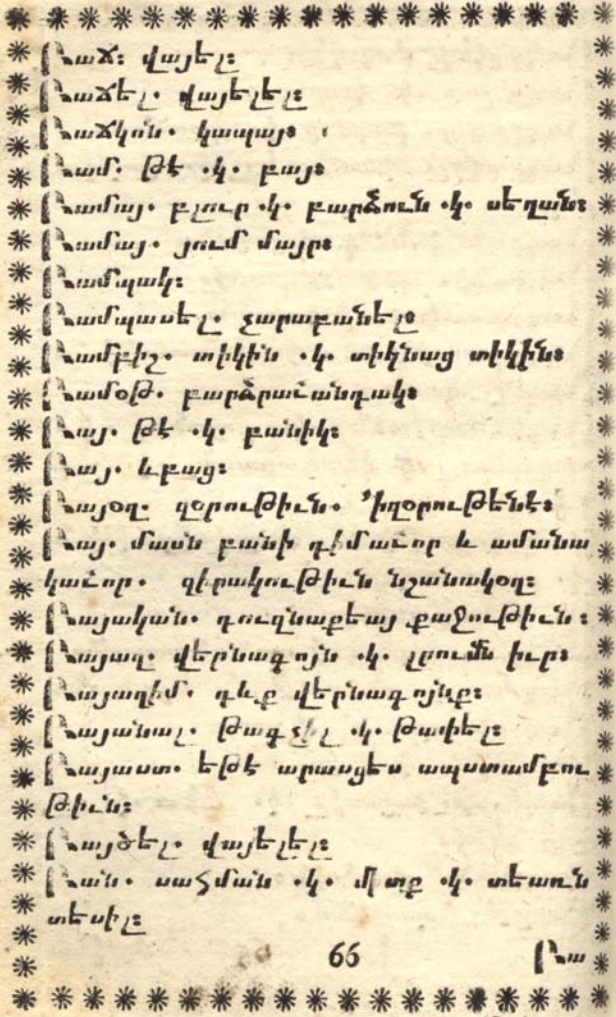 Բաճ։ վայել։
Բաճել․ վայելել։
Բաճկոն․ կապայ։
Բամ․ թէ ․կ․ բայ։
Բամայ․ բլուր ․կ․ բարձուն ․կ․ սեղան։
Բամայ․ յում մայր։
Բամպակ։
Բամպասել․ չարաբանել։
Բամբիշ․ տիկին ․կ․ տիկնաց տիկին։
Բամօթ․ բարձրավանդակ։
Բայ․ թէ ․կ․ բանիկ։
Բայ․ ևբաց։
Բայօղ․ զօրութիւն․ ՚իզօրութենէ։
Բայ․ մասն բանի դիմաւոր և ամանա
կաւոր․ զիրակութիւն նշանակօղ։
Բայական․ դուզնաքեայ քաջութիւն։
Բայաղ․ վերնագոյն ․կ․ լրումն իւր։
Բայաղիմ․ դևք վերնագոյնք։
Բայանալ․ թագչիլ ․կ․ թափել։
Բայաստ․ եթէ արասցես ապստամբու
թիւն։
Բայծել․ վայելել։
Բան․ սահման ․կ․ միտք ․կ․ տեառն
տեսիլ։
66 Բա